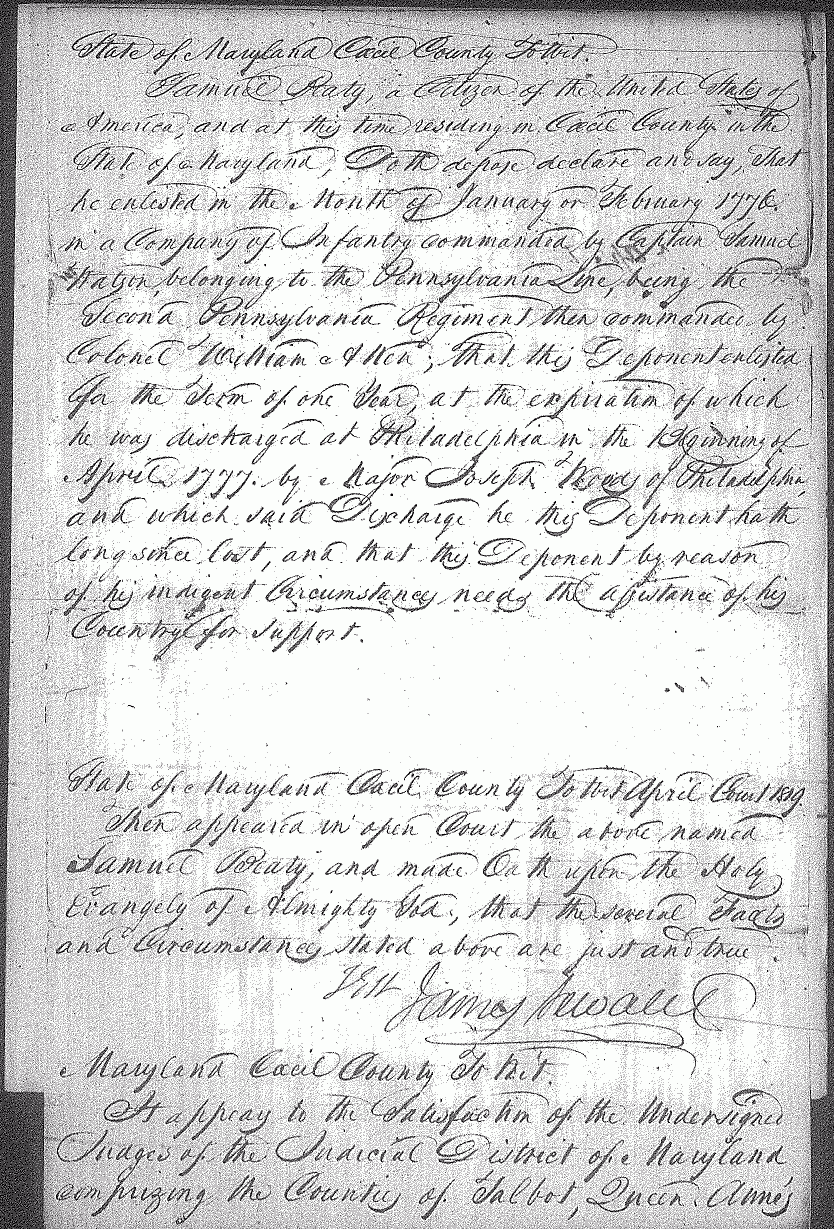 State of Maryland Cecil County To Wit.
Samuel Beaty, a Citizen of the United States of
America, and at this time residing in Cecil County in the
State of Maryland, Doth depose declare and say, that
he enlisted in the Month of January or February 1776.
in a Company of Infantry commanded by Captain Samuel
Watson, belonging to the Pennsylvania Line, being the
Second Pennsylvania Regiment, then commanded by
Colonel William; that this Deponent enlisted
for the Term of one Year, at the expiration of which
he was discharged at Philadelphia in the Beginning of
April, 1777. by Major Joseph Woods of Philadelphia,
and which said Discharge he this Deponent hath
long since lost, and that this Deponent by reason
of his indigent Circumstances needs the assistance of his
Country for support.
State of Maryland Cecil County To Wit April Court 1819.
Then appeared in open Court the above named
Samuel Beaty, and made Oath upon the Holy
Evangely of Almighty God, that the several Facts
and Circumstances stated above are just and true.
Test James Sewall
Maryland Cecil County To Wit.
It appears to the Satisfaction of the Undersigned
Judges of the Judicial District of Maryland
comprizing the Counties of Talbot, Queen Anne's